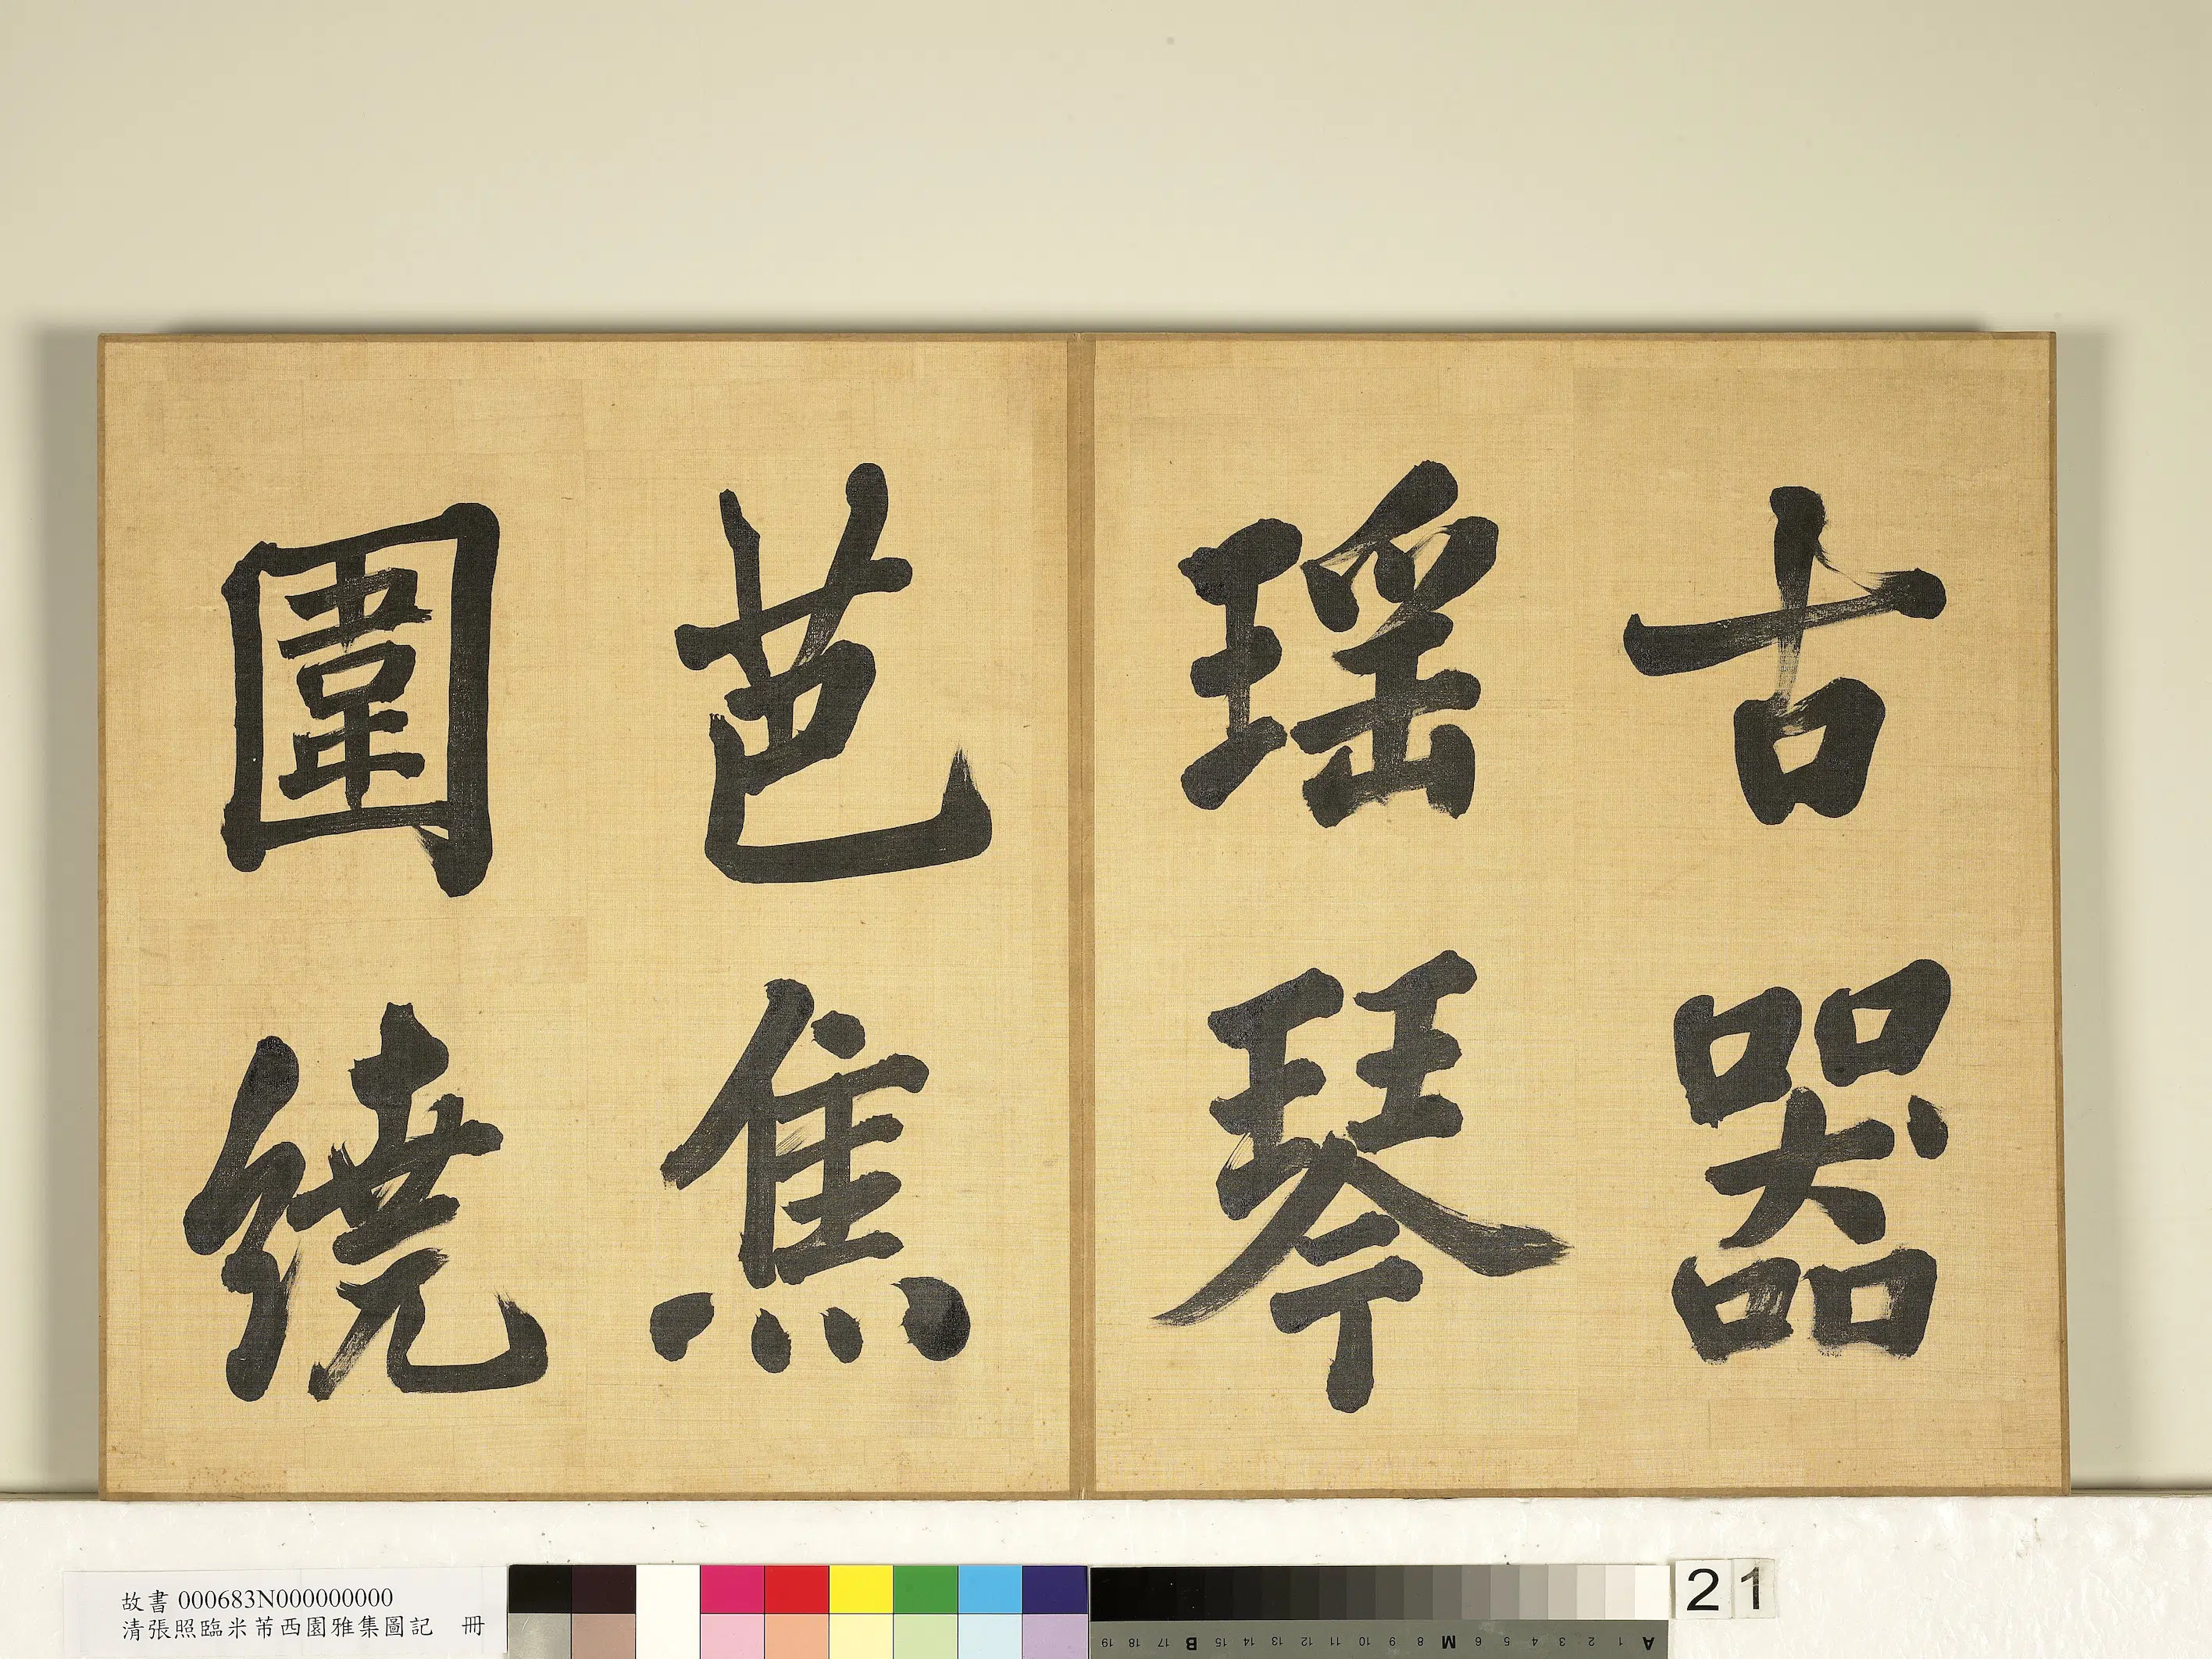 古器
瑶琴
芭焦
圍繞
故書 000683N000000000
清張照臨米芾西園雅集圖記 冊
21
A 1 2 3 4 5 6 7 8 M 9 10 11 12 13 14 15 B 17 18 19